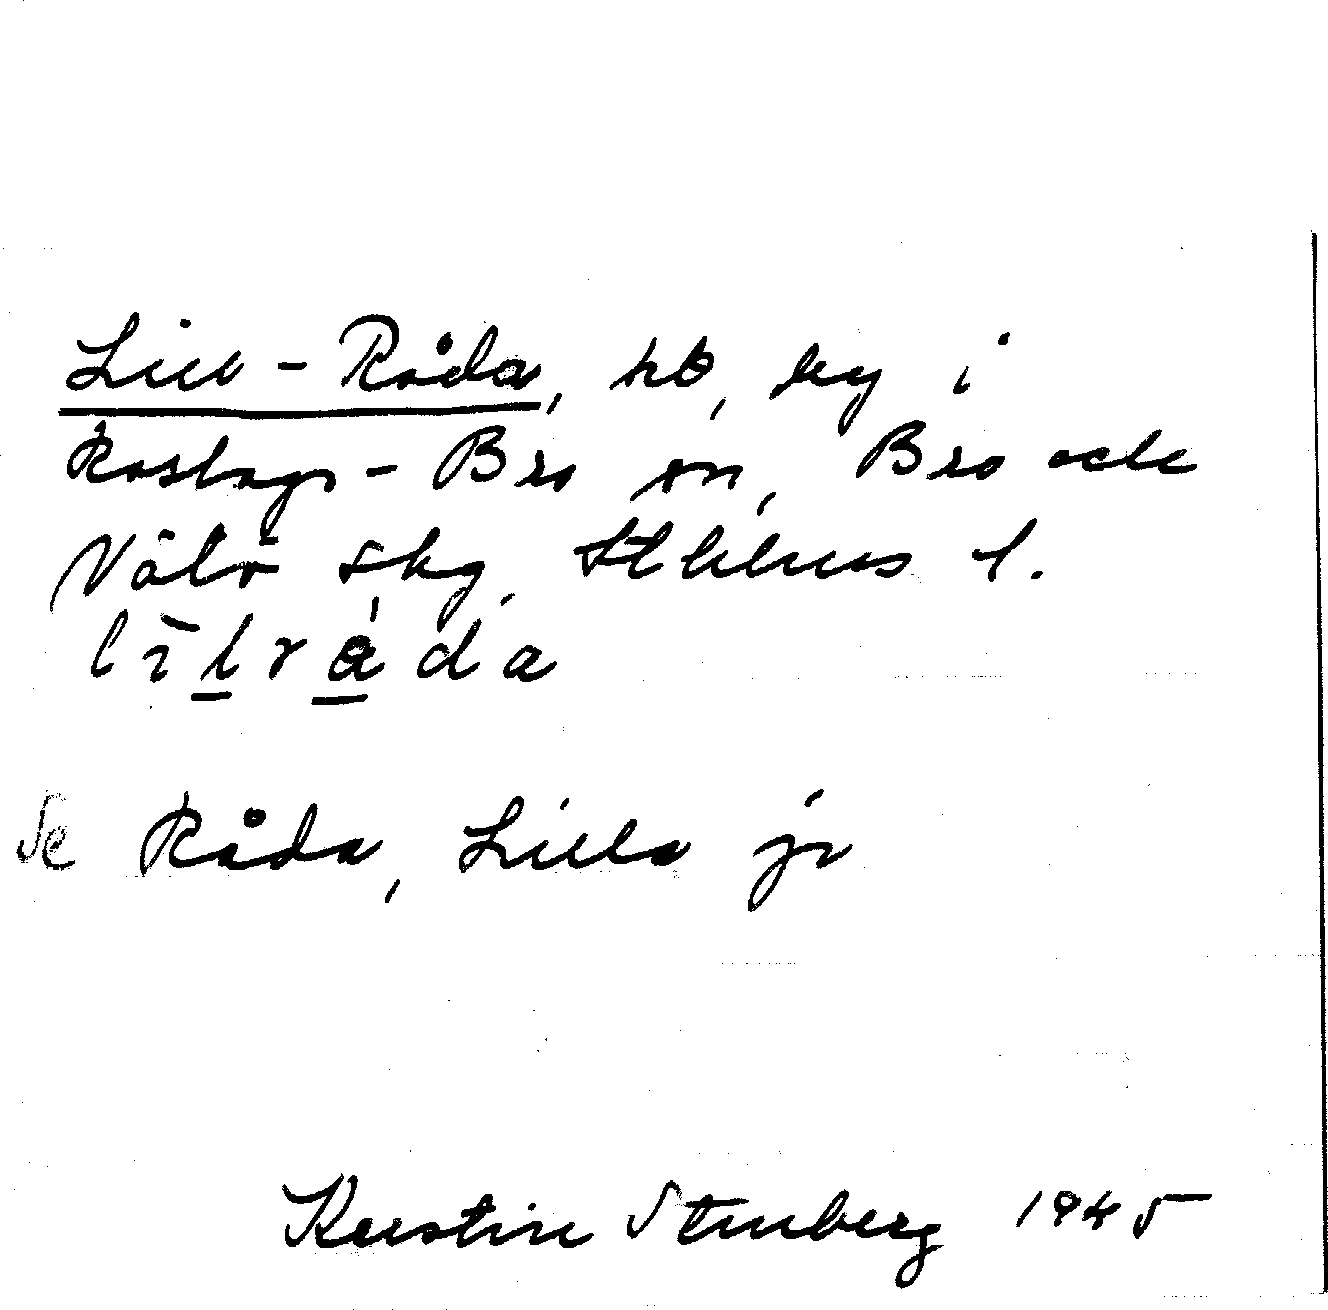 Lill-Råda, hb, by i
Roslags-Bro sn, Bro och
Vätö skg, Sthlms l.
li̅lråda
Se Råda, Lilla
Kerstin Stenberg 1945